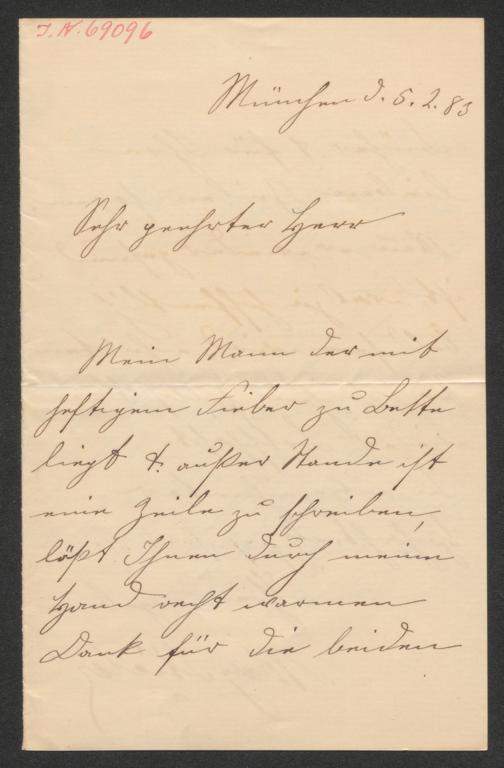 J. N. 69096
München d. 5. 2. 83
Sehr geehrter Herr
Mein Mann der mit
heftigem Fieber zu Bette
liegt & außer Stande ist
eine Zeile zu schreiben,
läßt Ihnen durch meine
Hand recht warmen
Dank für die beiden